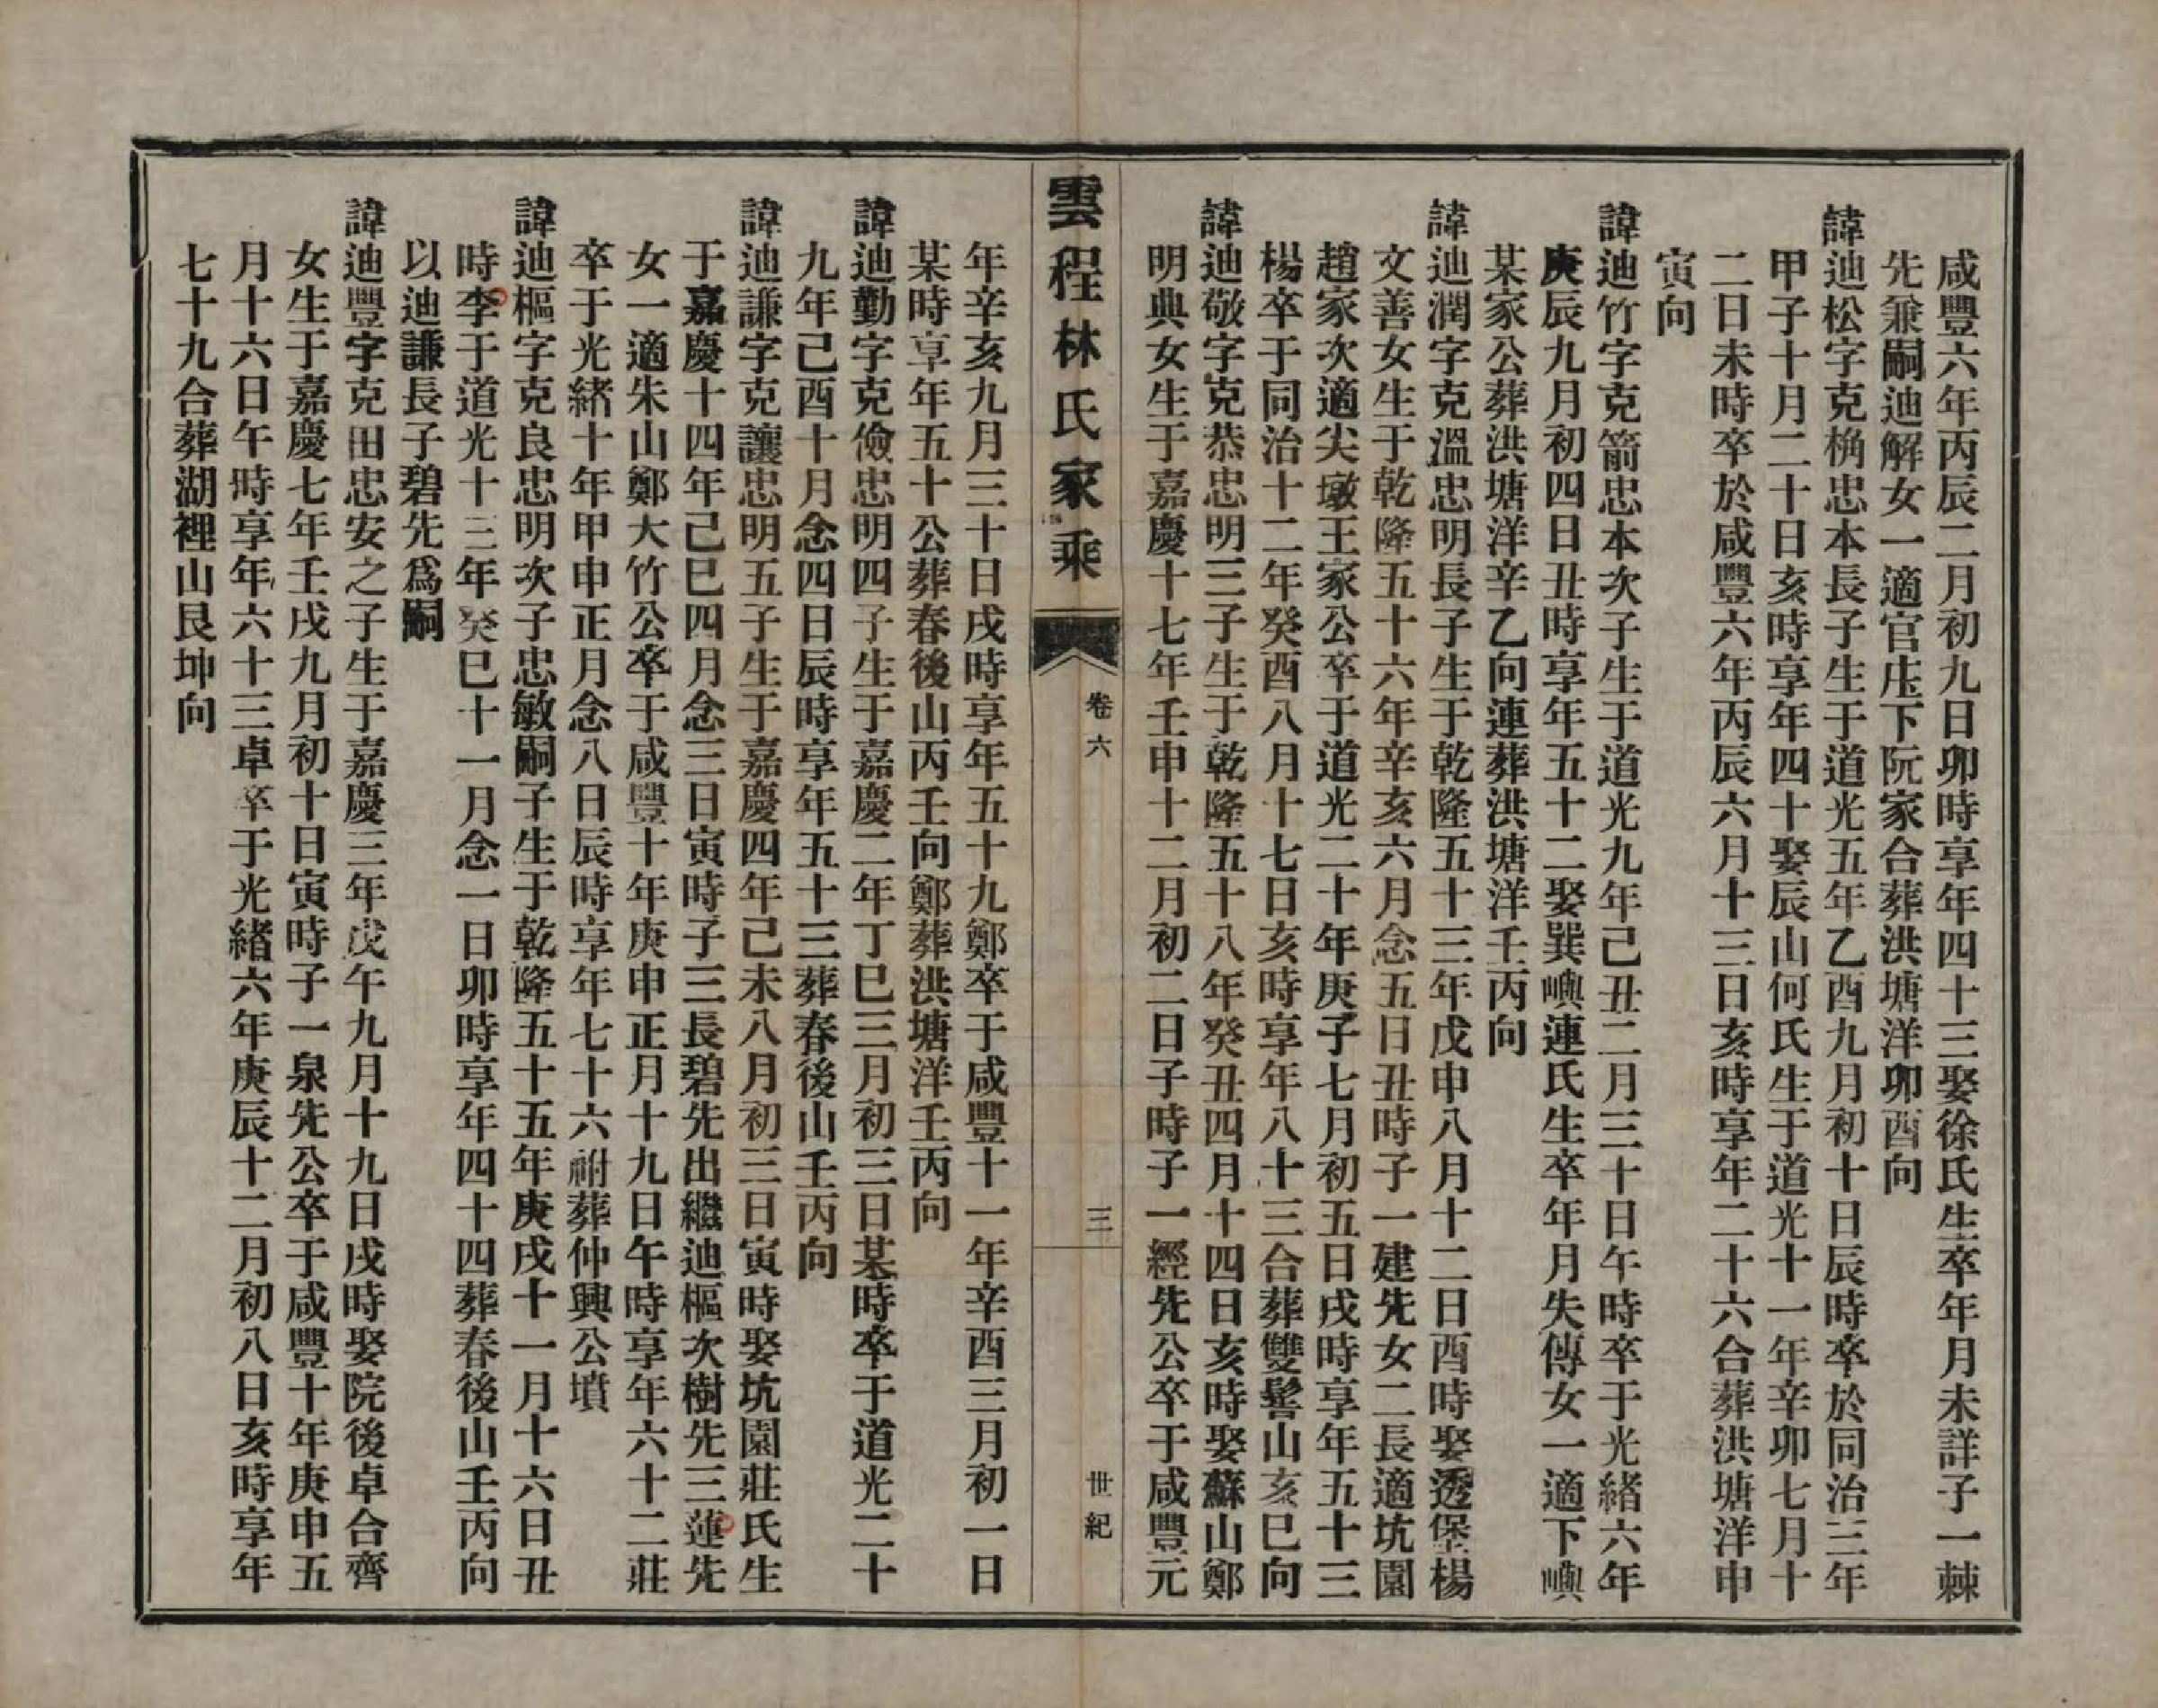 咸豐六年丙辰二月初九日卯時享年四十三娶徐氏生卒年月未詳子一棘
先兼嗣迪解女一適官庄下阮家合葬洪塘洋卯酉向
諱迪松字克桷忠本長子生于道光五年乙酉九月初十日辰時卒於同治三年
甲子十月二十日亥時享年四十娶辰山何氏生于道光十一年辛卯七月十
二日未時卒於咸豐六年丙辰六月十三日亥時享年二十六合葬洪塘洋申
寅向
諱迪竹字克箭忠本次子生于道光九年己丑二月三十日午時卒于光緒六年
庚辰九月初四日丑時享年五十二娶巽嶼連氏生卒年月失傳女一適下嶼
某家公葬洪塘洋辛乙向連葬洪塘洋壬丙向
諱迪潤字克溫忠明長子生于乾隆五十三年戊申八月十二日酉時娶透堡楊
文善女生于乾隆五十六年辛亥六月念五日丑時子一建先女二長適坑園
趙家次適尖墩王家公卒于道光二十年庚子七月初五日戌時享年五十三
楊卒于同治十二年癸酉八月十七日亥時享年八十三合葬雙髻山亥巳向
諱迪敬字克恭忠明三子生于乾隆五十八年癸丑四月十四日亥時娶蘇山鄭
明典女生于嘉慶十七年壬申十二月初二日子時子一經先公卒于咸豐元
雲程林氏家乘
卷六
三
世紀
年辛亥九月三十日戌時享年五十九鄭卒于咸豐十一年辛酉三月初一日
某時享年五十公葬春後山丙壬向鄭葬洪塘洋壬丙向
諱迪勤字克儉忠明四子生于嘉慶二年丁巳三月初三日某時卒于道光二十
九年己酉十月念四日辰時享年五十三葬春後山壬丙向
諱迪謙字克讓忠明五子生于嘉慶四年己未八月初三日寅時娶坑園莊氏生
于嘉慶十四年己巳四月念三日寅時子三長碧先出繼迪樞次樹先三蓮先
女一適朱山鄭大竹公卒于咸豐十年庚申正月十九日午時享年六十二莊
卒于光緒十年甲申正月念八日辰時享年七十六祔葬仲興公墳
諱迪樞字克良忠明次子忠敏嗣子生于乾隆五十五年庚戌十一月十六日丑
時李于道光十三年癸巳十一月念一日卯時享年四十四葬春後山壬丙向
以迪謙長子碧先爲嗣
諱迪豐字克田忠安之子生于嘉慶三年戊午九月十九日戌時娶院後卓合齊
女生于嘉慶七年壬戌九月初十日寅時子一泉先公卒于咸豐十年庚申五
月十六日午時享年六十三卓卒于光緒六年庚辰十二月初八日亥時享年
七十九合葬湖裡山艮坤向